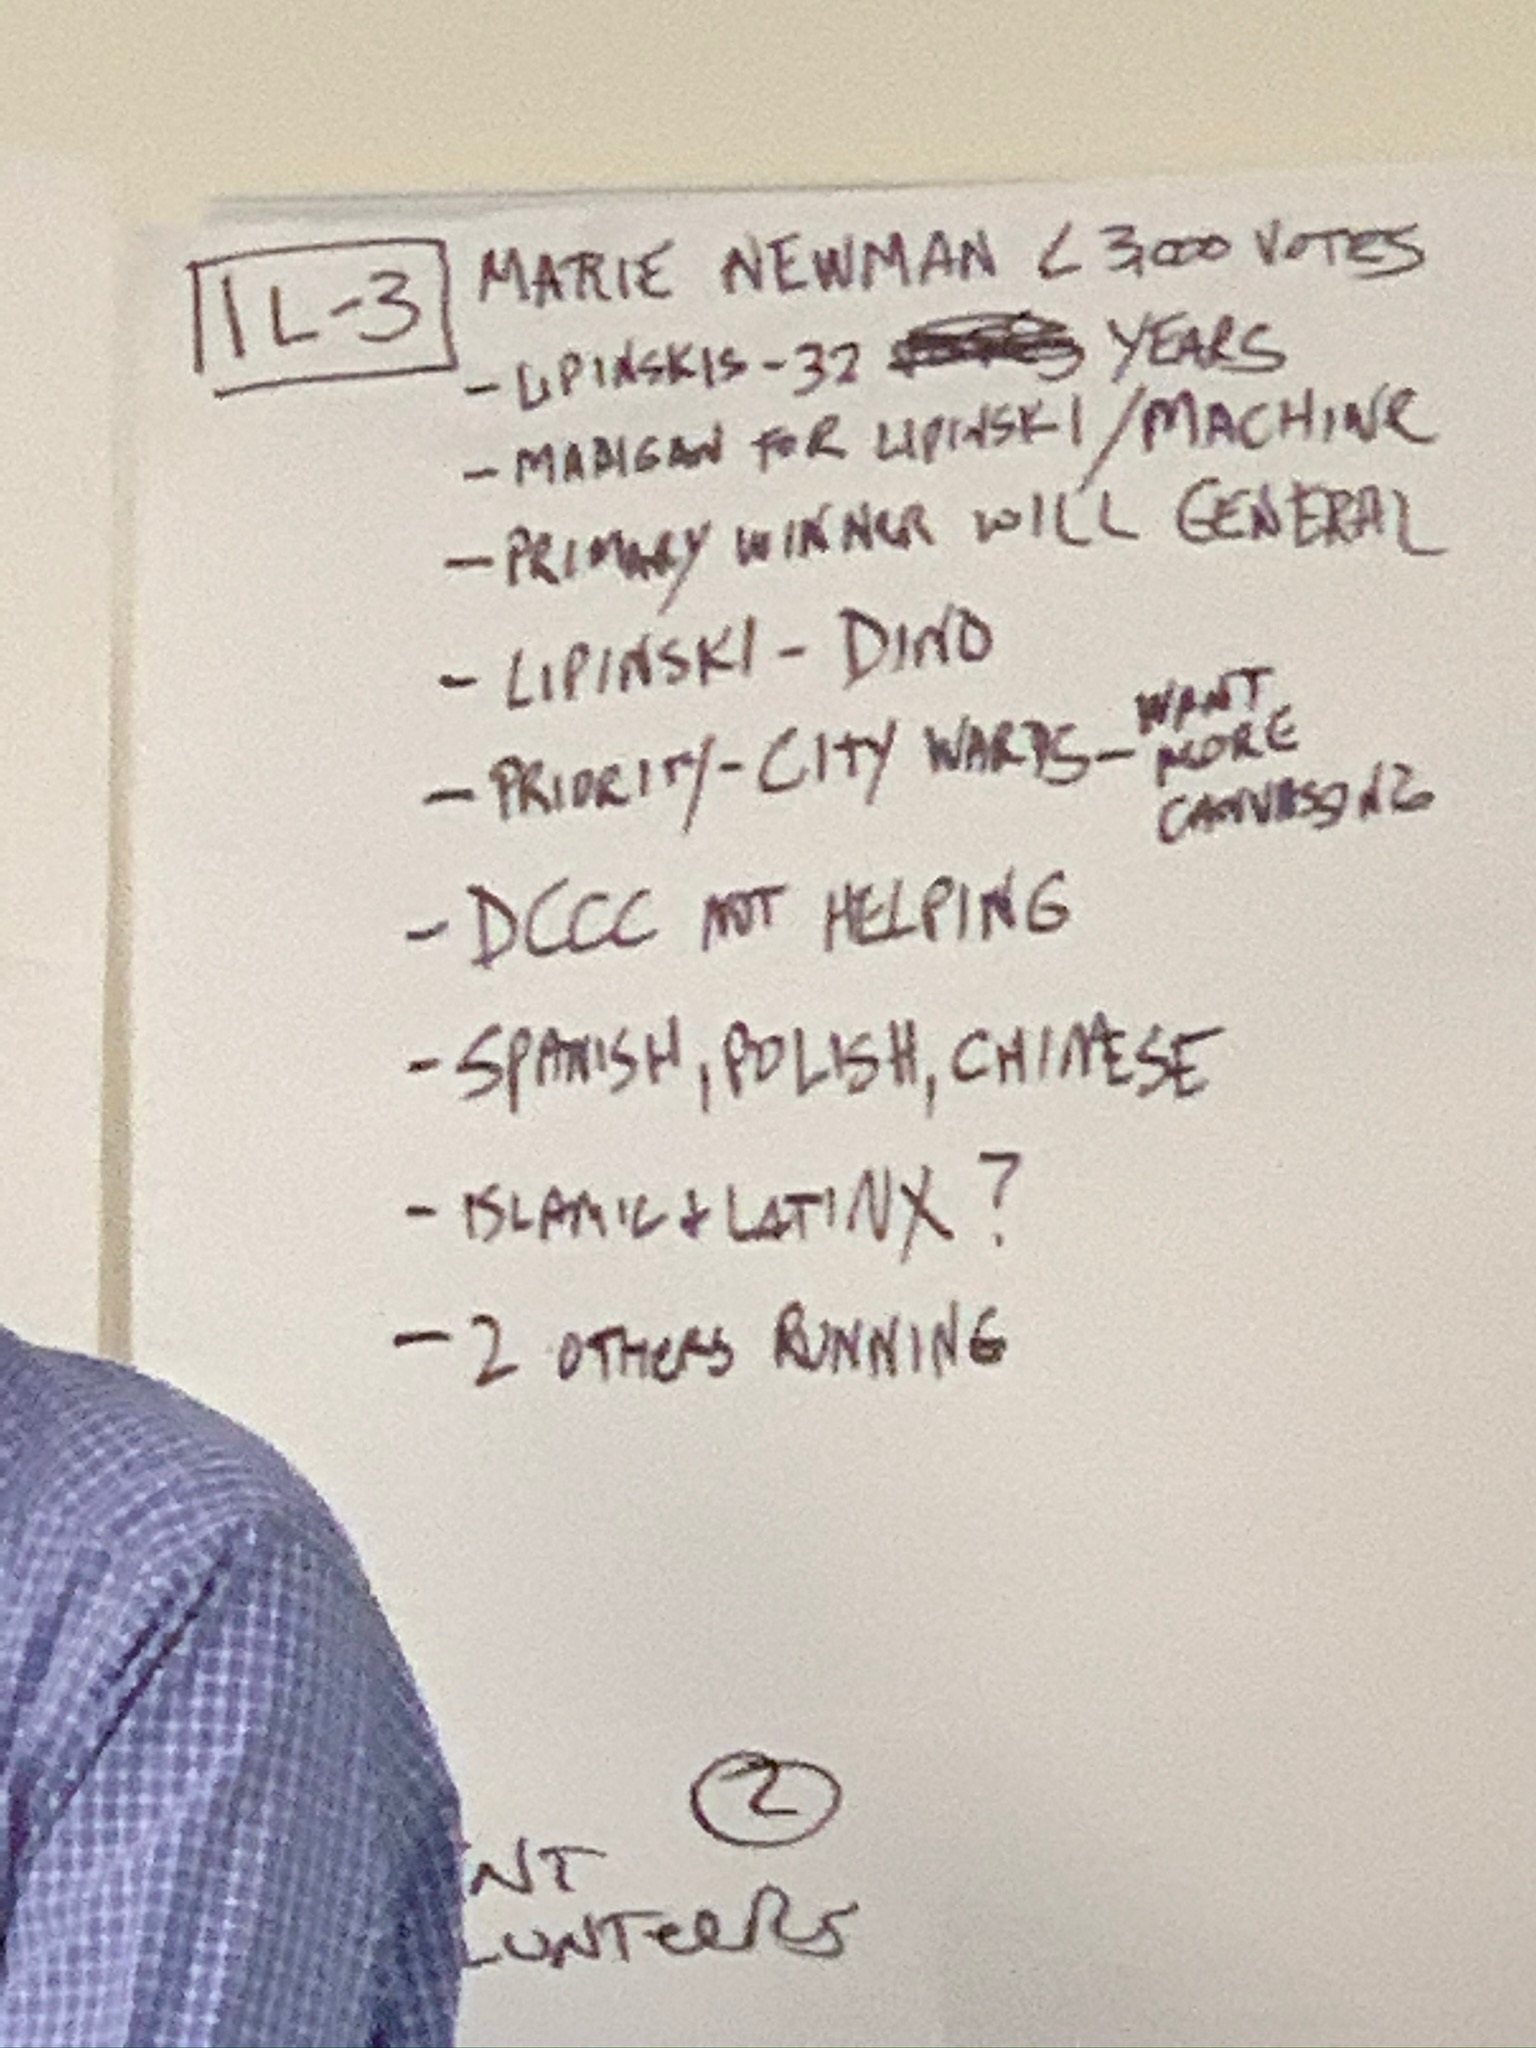 IL-3 MARIE NEWMAN < 3,000 VOTES
- LIPINSKIS - 32 YEARS
- MADIGAN FOR LIPINSKI / MACHINE
- PRIMARY WINNER WILL GENERAL
- LIPINSKI - DINO
- PRIORITY - CITY WARDS - WANT
MORE
CANVASSING
- DCCC NOT HELPING
- SPANISH, POLISH, CHINESE
- ISLAMIC + LATINX ?
- 2 OTHERS RUNNING
2
NT
LUNTEERS